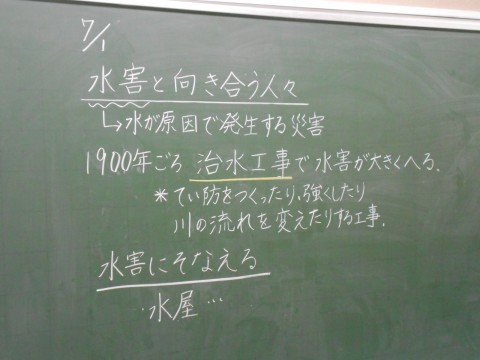 7/1
水害と向き合う人々
↳水が原因で発生する災害
1900年ごろ 治水工事で水害が大きくへる.
*てい防をつくったり、強くしたり
川の流れを変えたりする工事.
水害にそなえる
・水屋…